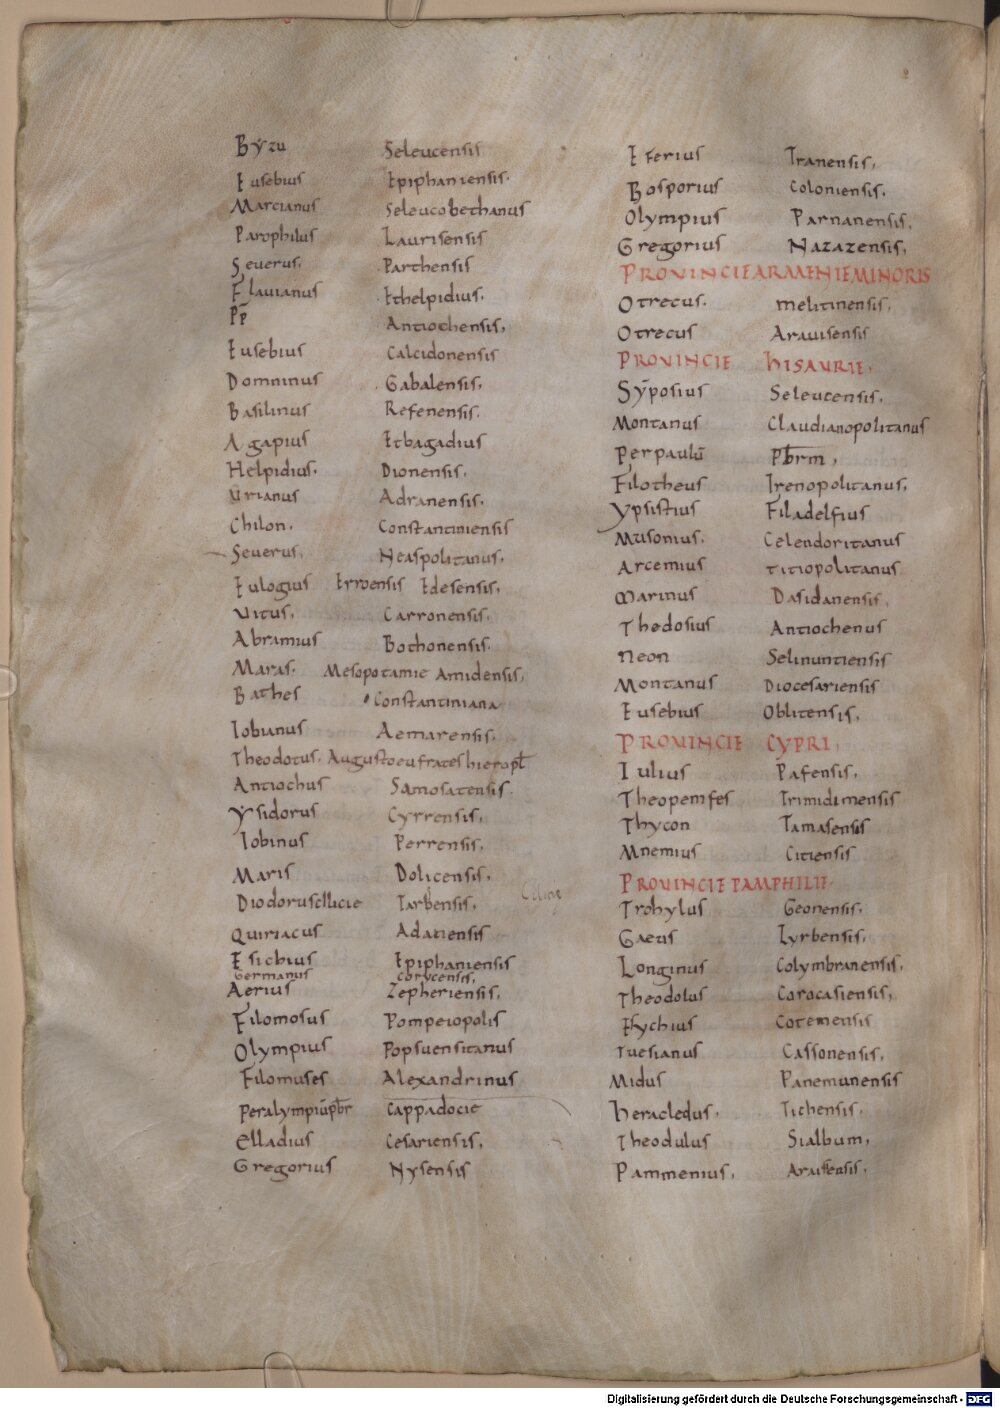 Byzu Seleucensis
Eusebius Epiphaniensis.
Marcianus Seleucobethanus
Parophilus Laurisensis
Seuerus. Parthensis
Flauianus Ethelpidius.
Pp̄ Antiochensis,
Eusebius Calcidonensis
Domninus Gabalensis,
Basilinus Refenensis.
Agapius Etbagadius
Helpidius. Dionensis.
Urianus Adranensis.
Chilon. Constantiniensis
Seuerus. Neaspolitanus.
Eulogius Erroensis Edesensis,
Uitus. Carronensis.
Abramius Bothonensis.
Maras. Mesopotamie Amidensis,
Bathes Constantiniana
Iobianus Aemarensis.
Theodotus. Augustoeufrateshieropl̄
Antiochus Samosatensis
Ysidorus Cyrrensis,
Iobinus Perrensis.
Maris Dolicensis.
Diodoruscllicie Tarbensis,
Quiriacus Adatiensis
Esichius Epiphaniensis
Germanus Corycensis,
Aerius Zepheriensis,
Filomosus Pompeiopolis
Olympius Popsuensitanus
Filomuses Alexandrinus
Peralympiūpb̄r Cappadocie
Elladius Cesariensis,
Gregorius Nysensis
Eferius Tranensis,
Bosporius Coloniensis.
Olympius Parnanensis.
Gregorius Nazazensis,
PROUINCIE ARMENIE MINORIS
Otrecus. Melitinensis.
Otrecus Arauisensis
PROUINCIE HISAURIE,
Sȳposius Seleucensis,
Montanus Claudianopolitanus
Perpaulū Pb̄rm,
Filotheus Irenopolitanus,
Ypsistius Filadelfius
Musonius. Celendoritanus
Arcemius Titiopolitanus
Marinus Dasidanensis
Thedosius Antiochenus
Neon Selinuntiensis
Montanus Diocesariensis
Eusebius Oblitensis,
PROUINCIE CYPRI,
Iulius Pafensis,
Theopemfes Trimidimensis
Thycon Tamasensis
Mnemius Citiensis
PROUINCIE PAMPHILIE
Trohylus Geonensis,
Gaeus Lyrbensis,
Longinus Colymbranensis,
Theodolus Corocasiensis,
Esychius Cotemensis
Tuesianus Cassonensis,
Midus Panemunensis
Heracledus. Tichensis.
Theodulus Sialbum,
Pammenius, Araissensis,
Digitalisierung gefördert durch die Deutsche Forschungsgemeinschaft - DFG